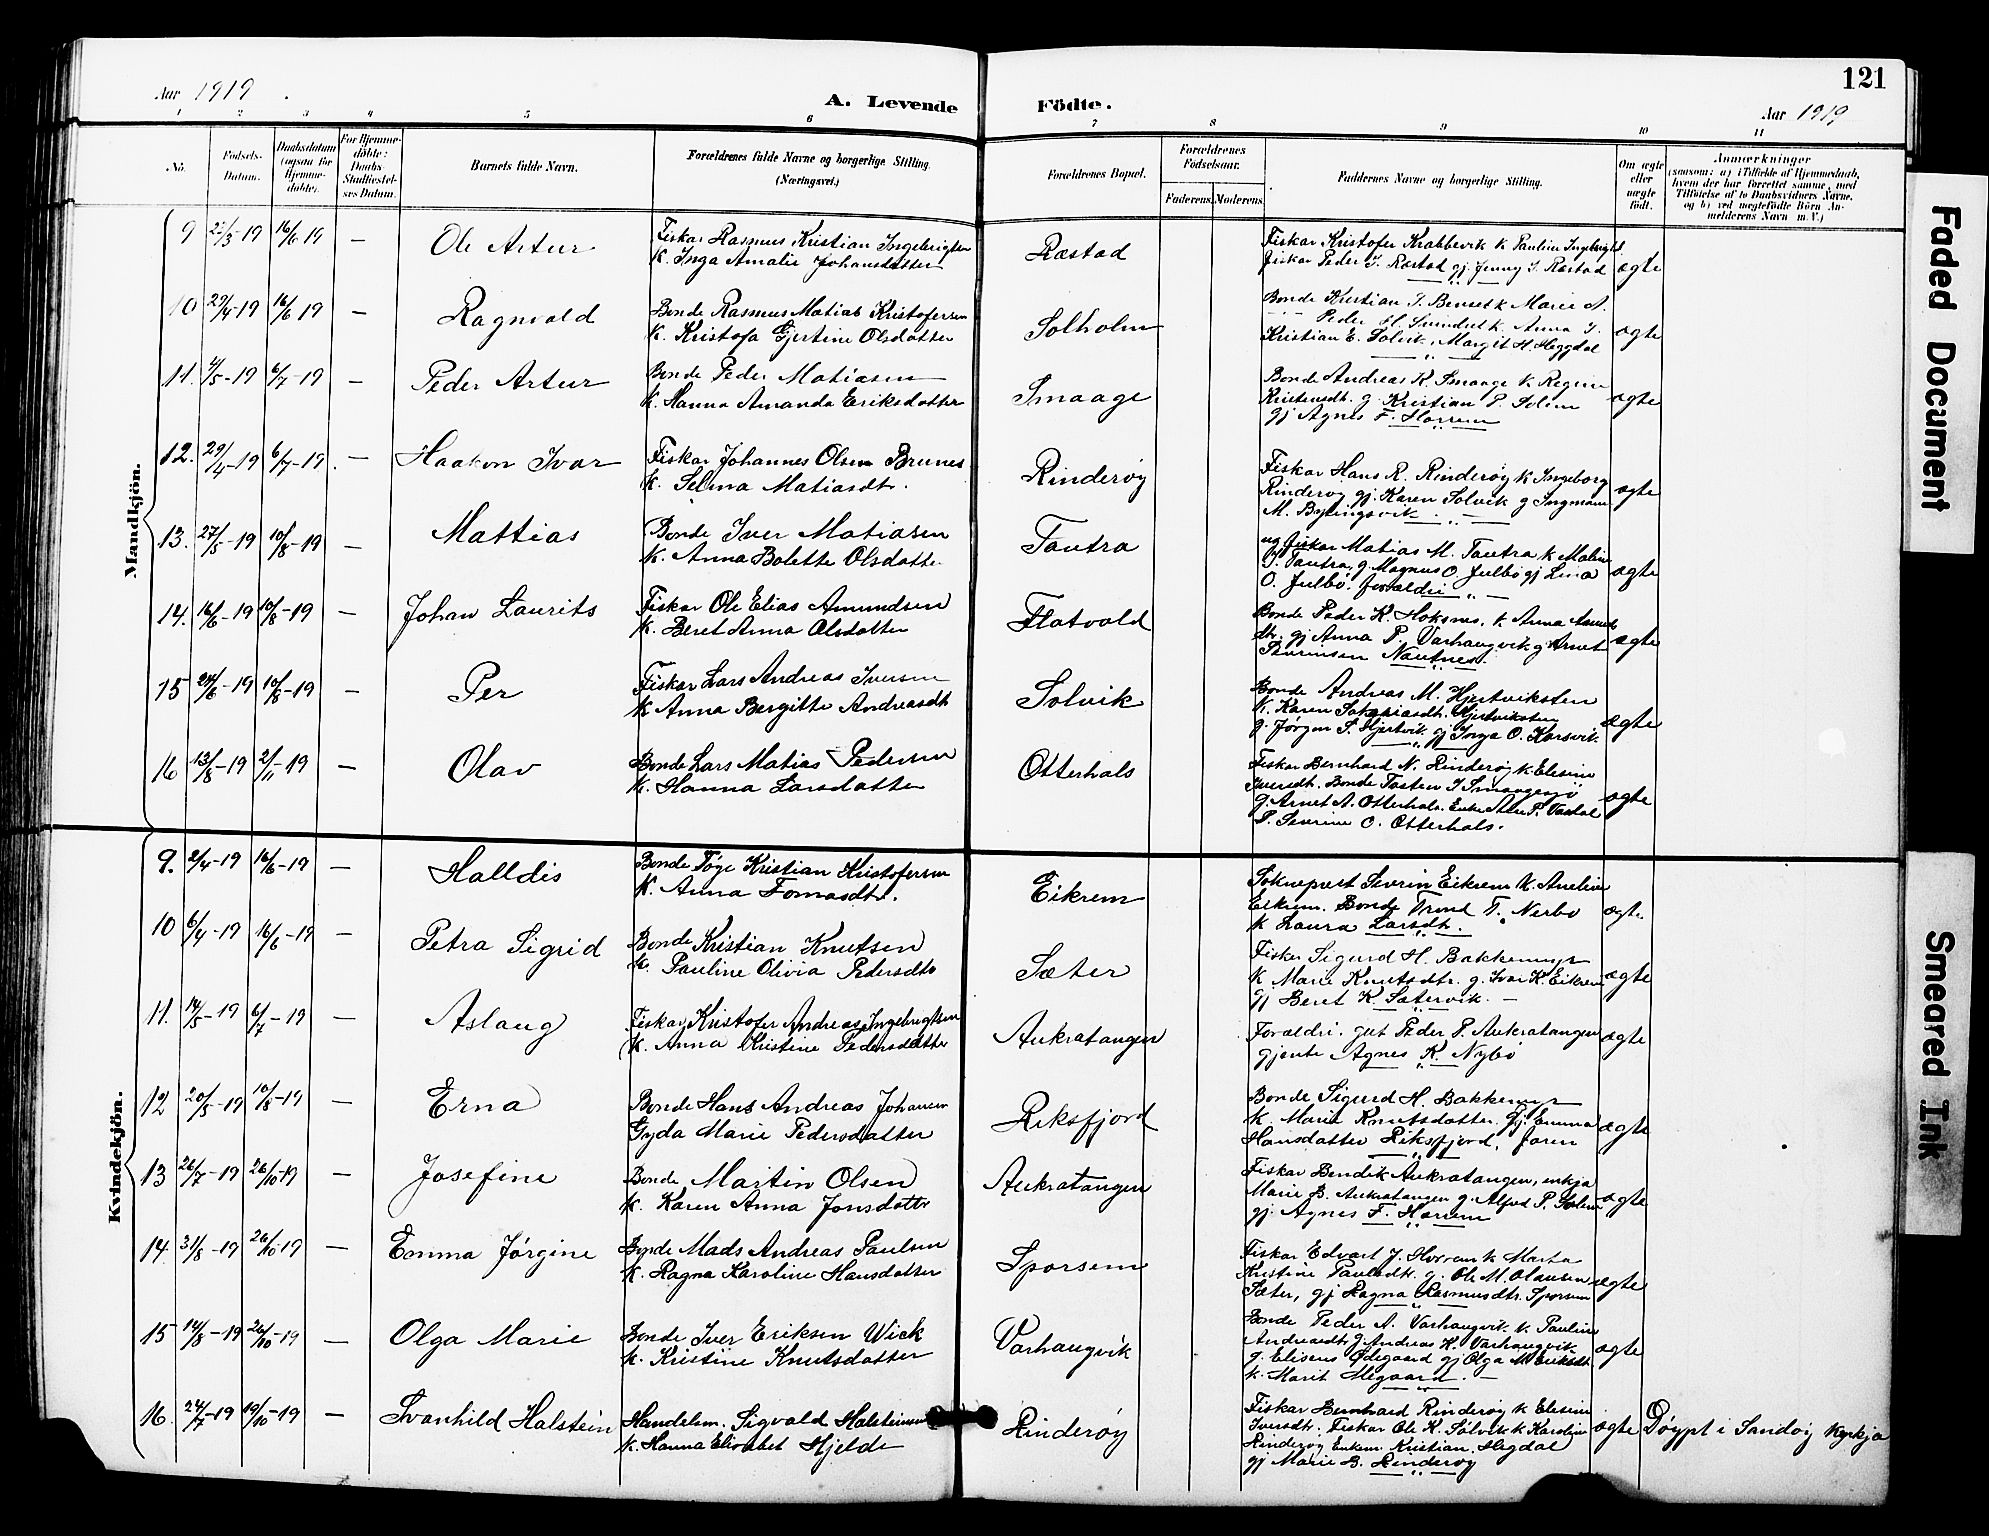 121
Aar 1919.
A. Levende Födte.
Aar 1919
1 2 3 4 5 6 7 8 9 10 11
No.
Födsels-Datum.
Daabsdatum (ogsaa for Hjemmedöbte).
For Hjemmedöbte: Daabs-Stadfæstelses Datum.
Barnets fulde Navn.
Forældrenes fulde Navne og borgerlige Stilling. (Næringsvei.)
Forældrenes Bopæl.
Forældrenes Födselsaar.
Faderens. Moderens.
Faddernes Navne og borgerlige Stilling.
Om ægte eller uægte født.
Anmærkninger
(saasom: a) i Tilfælde af Hjemmedaab, hvem der har forrettet samme, med Tilföielse af to Daabsvidners Navne, og b) ved uægtefödte Börn Anmelderens Navn m. V.)
Mandkjön.
9 22/3-19 16/6 19 — Ole Artur
Fiskar Rasmus Kristian Ingebrigtsen
K. Inga Amalie Johansdatter
Ræstad
Fiskar Kristofer Krabbevik k Pauline Ingebrigtsd.
fiskar Peder I. Ræstad gj. Jenny I. Ræstad
ægte
10 29/4-19 16/6 19 — Ragnvald
Bonde Rasmus Matias Kristofersen
K. Kristofa Gjertine Olsdatter
Solholm
Bonde Kristian I. Benset k Marie A.
Peder H. k. Anna I.
Kristian E. Solvik, Margit H. Heggdal
ægte
11. 4/5-19 6/7-19 — Peder Artur
Bonde Peder Matiasen
K. Hanna Amanda Eriksdatter
Smaage
Bonde Andreas K. Smaage k. Regine
Kristensdt. g. Kristian P. Solem
gj Agnes F. Horrem
ægte
12. 29/4-19 6/7-19. — Haakon Ivar
Fiskar Johannes Olsen Brunes
K. Selma Matiasdt.
Rinderøy
Fiskar Hans R. Rinderøy k Ingeborg
Rinderøy gj. Karen Solvik g Ingmann
M. Bylingsvik
ægte
13. 27/5-19 10/8-19 — Mattias
Bonde Iver Matiasen
K. Anna Bolette Olsdatter
Tautra
ug fiskar Matias M. Tautra k Malene
I. Tautra, g. Magnus O. Julbø gj Lina
O. Julbø. foreldri
ægte
14. 16/6-19 10/8-19 — Johan Laurits
Fiskar Ole Elias Amundsen
K. Beret Anna Olsdatter
Flatvald
Bonde Peder K. Hoksnes, k. Anna Amund
dtr. gj Anna P. Varhaugvik g Arnet
Severinsen Nautnes.
ægte
15 24/6-19 10/8-19 — Per
Fiskar Lars Andreas Iversen
K Anna Bergitte Andreasdt
Solvik
Bonde Andreas M. Hjertviksten
K. Karen Sakariasdt. Hjertviksten
g. Jørgen S. Hjertvik gj Inga O. Korsvik
ægte
16 13/8-19 2/11-19 — Olav
Bonde Lars Matias Pedersen
K. Hanna Larsdatter
Otterhals
Fiskar Bernhard N. Rinderøy k Elesine
Iversdt. Bonde Tosten I Smaageøi
g. Arnet A. Otterhals. Enke Ane P. Vastal
P. Severine O. Otterhals.
ægte
Kvindekjön.
9. 2/4-19 16/6-19 — Halldis
Bonde Tøge Kristian Kristofersen
K. Anna Tomasdt.
Eikrem
Sokneprest Severin Eikrem k. Aneline
Eikrem. Bonde Trond T. Nerbø
k Laura Larsdt.
ægte
10 6/4-19 16/6-19 — Petra Sigrid
Bonde Kristian Knutsen
K. Pauline Olivia Pedersdtr
Sæter
Fisker Sigurd H. Bakkemyr
k Marie Knutsdtr. g. Ivar K. Eikrem
gj Beret K. Sætervik. —
ægte
11. 14/5-19 6/7-19 — Aslaug
Fiskar Kristofer Andreas Ingebrigtsen
K. Anna Kristine Pedersdatter
Aukratangen
Foreldri. gut Peder P. Aukratangen
gjente Agnes K. Nybø
ægte
12 20/5-19 10/8-19 — Erna
Bonde Hans Andreas Johansen
Gyda Marie Pedersdatter
Riksfjord
Bonde Sigurd H. Bakkemyr
K. Marie Knutsdatter. Gj. Emma
Hansdatter Riksfjord, faren
ægte
13 26/7-19 26/10-19 — Josefine
Bonde Martin Olsen
K. Karen Anna Jonsdatter
Aukratangen
Fiskar Bendik Aukratangen, enkja
Marie B. Aukratangen g. Alfred P. Solem
gj. Agnes F. Horrem
ægte
14. 31/8-19 26/10-19 — Emma Jørgine
Bonde Mads Andreas Paulsen
K. Ragna Karoline Hansdatter
Sporsem
Fiskar Edvart J. Horrem k Marta
Kristine Paulsdt. g. Ole M. Olausen
Sæter, gj Ragna Rasmusdtr. Sporsem
ægte
15 14/8-19 26/10-19 — Olga Marie
Bonde Iver Eriksen Wick
K. Kristine Knutsdatter
Varhaugvik
Bonde Peder A. Varhaugvik k. Pauline
Andreasdtr g. Andreas K. Varhaugvik
g. Eliseus Ødegaard gj Olga M Eriksdt
k. Marit Megaard. —
ægte
16. 24/7-19 19/10-19 — Svanhild Halstein
Handelsm. Sigvald Halsteinsen
K. Hanna Elisabet Hjelde
Rinderøy
Fiskar Bernhard Rinderøy k Elesine
Iversdt. Fiskar Ole K. Sølvik k Karoline
Rinderøy Enkem. Kristian Hegdal
gj Marie B. Rinderøy
ægte
Døypt i Sandøy Kyrkja
Faded Document
Smeared Ink